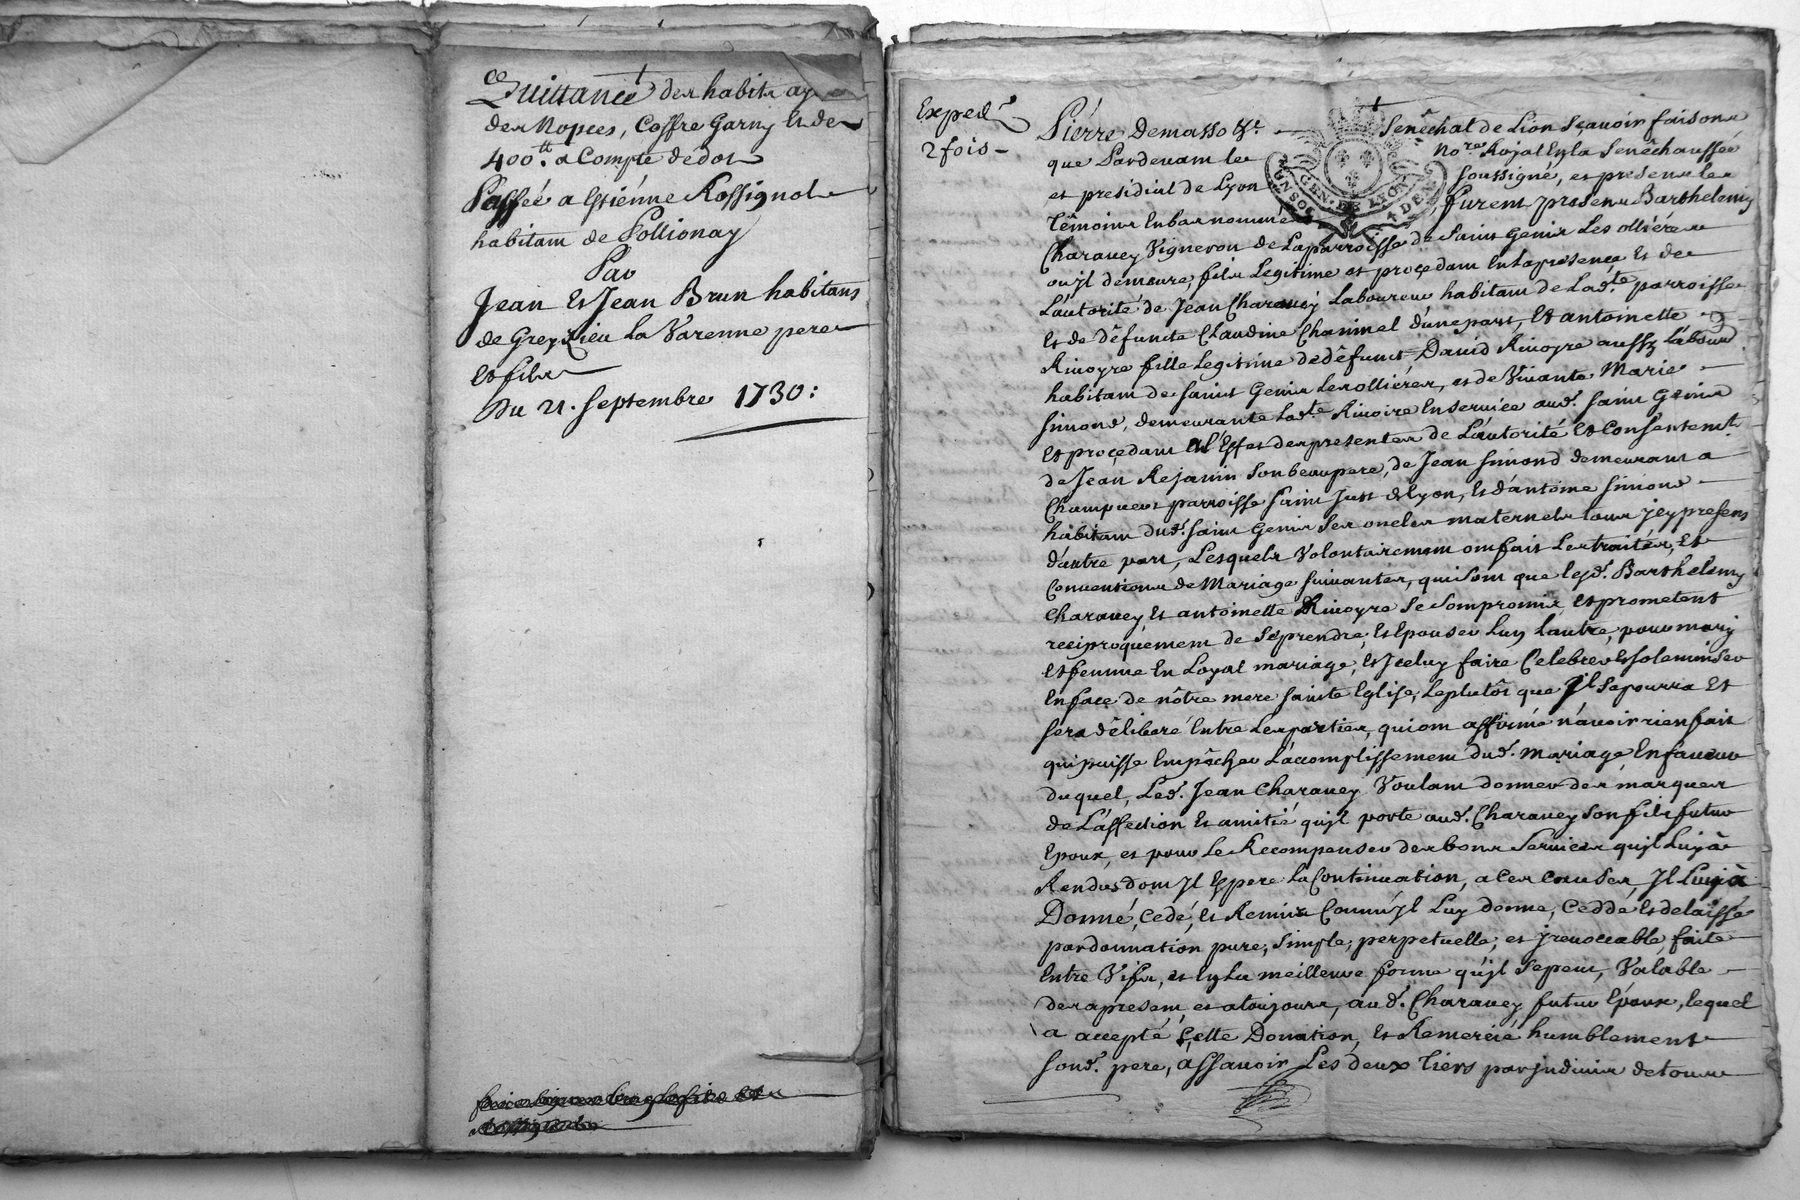 Quittance des habits
des Nopces, Coffre Garny Et de
400.tt a Compte dédot
Passée a Estiénne Rossignol
habitant de Pollionay
Par
Jean Et Jean Brun habitans
de Greyzieu la Varenne pere
Et fils
Du 21. Septembre 1730:
Exped.
2 fois
Piérre Demasso Sénéchal de Lion Sçauoir faisons
que Pardeuant le No.re Royal En la Sénéchaussée
et présidial de Lyon soussigné, et présens les
UN SOL GEN. DE LYON 4 DEN.
Témoins Enbas nommés, furent présens Barthelemy
Charauey Vigneron de La parroisse de Saint Genis Les olliéres
ou jl demeure, fils Legitime et proçedant En la présençe Et de
L'autorité de Jean Charauey Laboureur habitant de Lad.te parroisse
Et de défuncte Claudine Chanimel d'une part, Et antoinette
Riuoyre fille Legitime de défunct David Riuoyre aussy Labour.
habitant de Saint Genis Les olliéres, et de Viuante Marie
Simond, demeurante Lad.te Riuoire En seruice aud. Saint Genis
Et proçedant a l'Effet des presentes de L'autorité Et Consentemt.
de Jean Rejanin son beaupere, de Jean Simond demeurant a
Champuert parroisse Saint Just de Lyon, Et d'antoine Simond
habitant dud. Saint Genis Ses oncles maternels tous jcy presens
d'autre part, Lesquels Volontairement ont fait Les traités, Et
Conuentions de Mariage suiuantes, qui sont que lesd. Barthelemy
Charauey, Et antoinette Riuoyre Se sont promis, Et prometent
reciproquement de Se prendre, Et Epouser Lun Lautre, pour mary
Et femme En Loyal mariage, Et Jceluy faire Celebrer Et solemniser
En façe de nôtre mere sainte Eglise, Leplutôt que Jl Se pourra Et
sera déliberé Entre Les parties, qui ont affirmé n'auoir rien fait
qui puisse Empêcher L'accomplissement dud. Mariage, En faueur
duquel, Led. Jean Charauey Voulant donner des marques
de L'affection Et amitié qu'jl porte aud. Charauey Son fils futur
Epoux, et pour Le Recompenser des bons Seruices qu'jl Luy à
Rendus dont Jl Espere La Continuation, a Ces Causes, Jl Luy à
Donné, Cedé, Et Remis Comm'Jl Luy donne, Cedde Et delaisse
par donnation pure, simple, perpetuelle, et jreuoccable, faite
Entre Vifs, et En La meilleure forme qu'jl Se peut, Valable
des apresent et atoujours, aud. Charauey futur Epoux, lequel
a accepté Cette Donation, Et Remercié humblement
sond. pere, àssauoir Les deux Tiers par jndiuis de tous